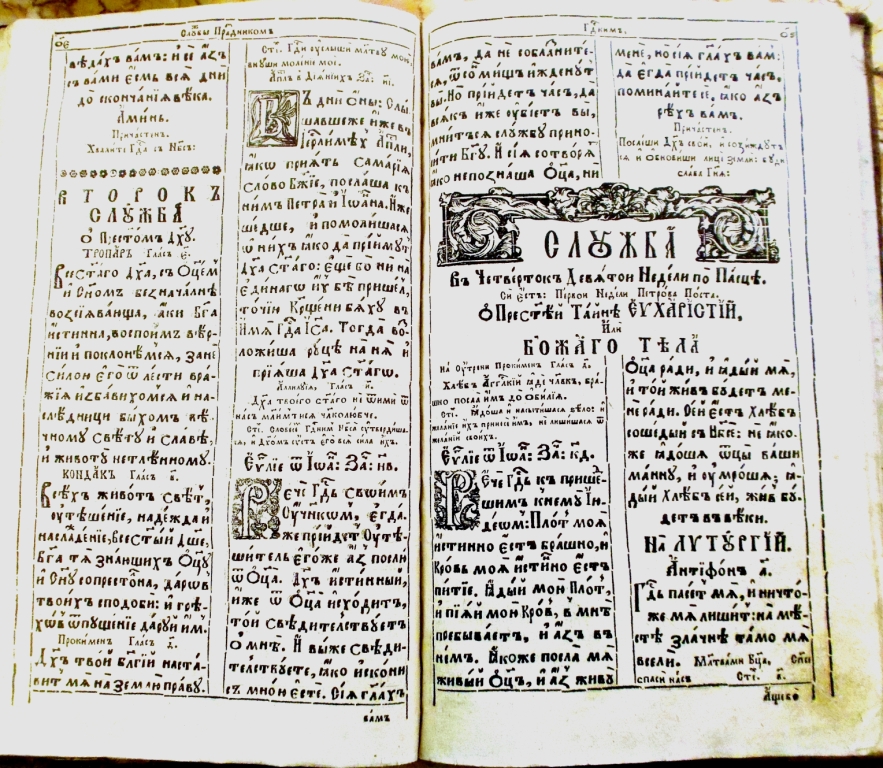 ѯ҃е
Слꙋжбы Пра́зникомъ
вѣдахъ ва́мъ: и се а҆́зъ
съ ва́ми е҆смь всѧ дни
до сконча́нїѧ вѣка.
А҆ми́нь.
Прича́стен.
Хвали́те Гд҇а съ Нб҃съ:
ВТОРОКЪ
СЛꙊЖБА
ѡ҆ Прест҃омъ Дх҃ꙋ.
ТРОПА́РЬ Гла́съ
и҆ Сн҃ом безнача́лнѣ
возсїѧ́вшаа, ꙗ҆ки Бг҃а
и҆́стинна, воспои́м вѣ́р-
нїи и҆ поклоне́мсѧ, зане́
си́лою Е҆гѡ̀ ѿ ле́сти вра́-
жїѧ и҆зба́вихомсѧ и҆ на-
слѣ́дници бы́хом вѣ́-
чномꙋ свѣ́тꙋ и҆ сла́вѣ,
и҆ животꙋ̀ нетлѣ́нномꙋ.
КОНДА́КЪ Гла́съ
Всѣ́хъ живо́тъ свѣ́т,
ѹ҆тѣше́нїе, наде́жда и҆
наслажде́нїе, всест҃ы́й Дш҃е,
Бг҃а тѧ̀ зна́ющихъ Оц҃ꙋ
и҆ Сн҃ꙋ сопресто́лна, даро́въ
твои́хъ сподо́би: и҆ грѣ-
хѡ́въ ѿпꙋще́нїе да́рꙋй и҆́м.
Проки́менъ Гла́съ
Дх҃ъ твой бл҃гі́й наста́-
вит мѧ̀ на зе́млю пра́вꙋ.
Стї. Гд҇и ѹ҆слы́ши мл҃твꙋ мою̀
внꙋшѝ моле́нїе моѐ.
А҆пл҃ъ в Дѣѧ́нїихъ За҃:
Въ дни ѡ҆́ны: Слы́-
шавше же и҆̀же въ
Іерⷭ҇ли́мѣ А҆пⷭ҇ли,
ꙗ҆́кѡ прїѧ́тъ Самарі́ѧ
Сло́во Бж҃їе, посла́ша къ
ни́мъ Петра̀ и҆ І҆ѡа́нна. И҆̀же
ше́дше, и҆ помоли́шасѧ
ѡ҆ ни́хъ ꙗ҆́ко да прїи́мꙋт
Дх҃а ст҃а́го: Е҆ще́ бо ни на
е҆ди́наго и҆́хъ бѣ̀ прише́л,
то́чїю Крⷳ҇ще́ни бѧ́хꙋ въ
и҆́мѧ Гд҇а І҆с҃а. Тогда̀ во-
ложи́ша рꙋ́цѣ на нѧ̀ и҆
прїѧ́ша Дх҃а ст҃а́го.
А҆ллилꙋ́їа, Гла́съ
Дх҃а твоего̀ ст҃а́го не ѿи́ми ѿ
на́съ мо́лимтисѧ чл҃колю́бче.
Стї. Словесе́м Гд҇нимъ Нб҃са̀ ѹ҆тверди́ша-
сѧ, и҆ дх҃омъ ѹ҆́ст е҆гѡ̀ всѧ̀ си́ла и҆́хъ.
Еѵⷢ҇лїе ѿ І҆ѡа̀: За҃: нв҃.
Речѐ Гд҇ь свои́мъ
Ѹ҆чн҃ко́м, Е҆гда́
же прїи́дет Ѹ҆тѣ́-
шитель Е҆го́же а҆́зъ послю̀
ѿ Оц҃а. Дх҃ъ и҆́стинный,
и҆́же ѿ Оц҃а и҆схо́дитъ,
то́й свѣдѣ́телствꙋетъ
ѡ҆ мнѣ̀. И҆ вы́ же свѣдѣ́-
телствꙋете, ꙗ҆́кѡ и҆сконѝ
съ мно́ю е҆стѐ. Сїѧ̀ гл҃ахъ
ва́мъ
Гд҇кимъ.
ѯ҃ѕ
ва́мъ, да не соблазни́те-
сѧ, ѿ со́нмищъ и҆жденꙋ́т
вы̀. Но прїи́детъ ча́съ, да
всѧ́къ и҆́же ѹ҆бїе́тъ вы̀,
мни́тьсѧ слꙋ́жбꙋ прино-
си́ти Бг҃ꙋ. И҆ сїѧ̀ сотворѧ́т
ꙗ҆́ко непозна́ша Оц҃а, ни
менѐ, но сїѧ̀ гл҃ахъ ва́м:
да Е҆гда̀ прїи́детъ ча́съ,
помина́йте сїѐ, ꙗ҆́ко а҆́зъ
рѣ́хъ ва́мъ.
Прича́стен.
По́слеши Дх҃ъ сво́й, и҆ сози́ждꙋт
сѧ и҆ ѡ҆бнови́ши лицѐ землѝ: бꙋ́ди
сла́ва Гн҇ѧ:
СЛꙊЖБА
Въ Четверто́къ Девѧ́тои Неде́ли по Па́сцѣ.
Си́ Е҆́сть: Пе́рвои Неде́ли Петро́ва По́ста.
ѡ҆ Прест҃ѣ́й Та́йнѣ ЕУХАРІСТІЙ,
И҆лѝ
БО́ЖАГО ТѢЛА
на Ѹ҆́трени Проки́мен Гла́съ
Хлѣ́бъ А҆́гг҃лскїй ꙗ҆дѐ чл҃вкъ, бра́-
шно посла̀ и҆́мъ до ѡ҆би́лїѧ.
Стї. Ꙗ҆до́ша и҆ насы́тишасѧ ѕѣлѡ̀: и҆
жела́нїе и҆́хъ принесѐ и҆́м, не лиши́шасѧ ѿ
жела́нїй свои́хъ.
Еѵⷢ҇лїе ѿ І҆ѡа̀: За҃: кд҃.
Речѐ Гд҇ь къ прише́д-
шимъ къ немꙋ̀ І҆ꙋ-
де́ѡм: Пло́ть моѧ̀
и҆́стинно Е҆́сть бра́шно, и҆
Кро́вь моѧ̀ и҆́стинно Е҆́сть
питїѐ. Ꙗ҆ды́й мою̀ Пло́т,
и҆ пїѧ́й мою̀ Кро́в, в мнѣ̀
пребыва́етъ, и҆ а҆́зъ въ
не́мъ. Ꙗ҆́коже посла́ мѧ
живы́й Оц҃ъ, и҆ а҆́з живꙋ̀
Оц҃а ра́ди, и҆ ꙗ҆ды́й мѧ̀,
и҆ то́й жи́въ бꙋ́детъ ме-
нѐ ра́ди. Се́й Е҆́сть Хлѣ́бъ
соше́дый с Нб҃съ: не ꙗ҆́ко-
же ꙗ҆до́ша ѿц҃ы ва́ши
ма́ннꙋ, и҆ ѹ҆мро́ша: ꙗ҆-
ды́й Хлѣ́бъ се́й, жи́въ бꙋ́-
детъ въ вѣ́ки.
НА ЛУТꙊРГІЙ.
А҆нтїфо́н а҃.
Гд҇ь пасе́т мѧ̀, и҆ ничто́-
же мѧ̀ лиши́т: на мѣ́-
стѣ зла́чнѣ та́мо мѧ̀
всели́. Мл҃твами Бц҃а, Сп҃се
спаси́ на́съ Стї. а҃.
А҆́щебо